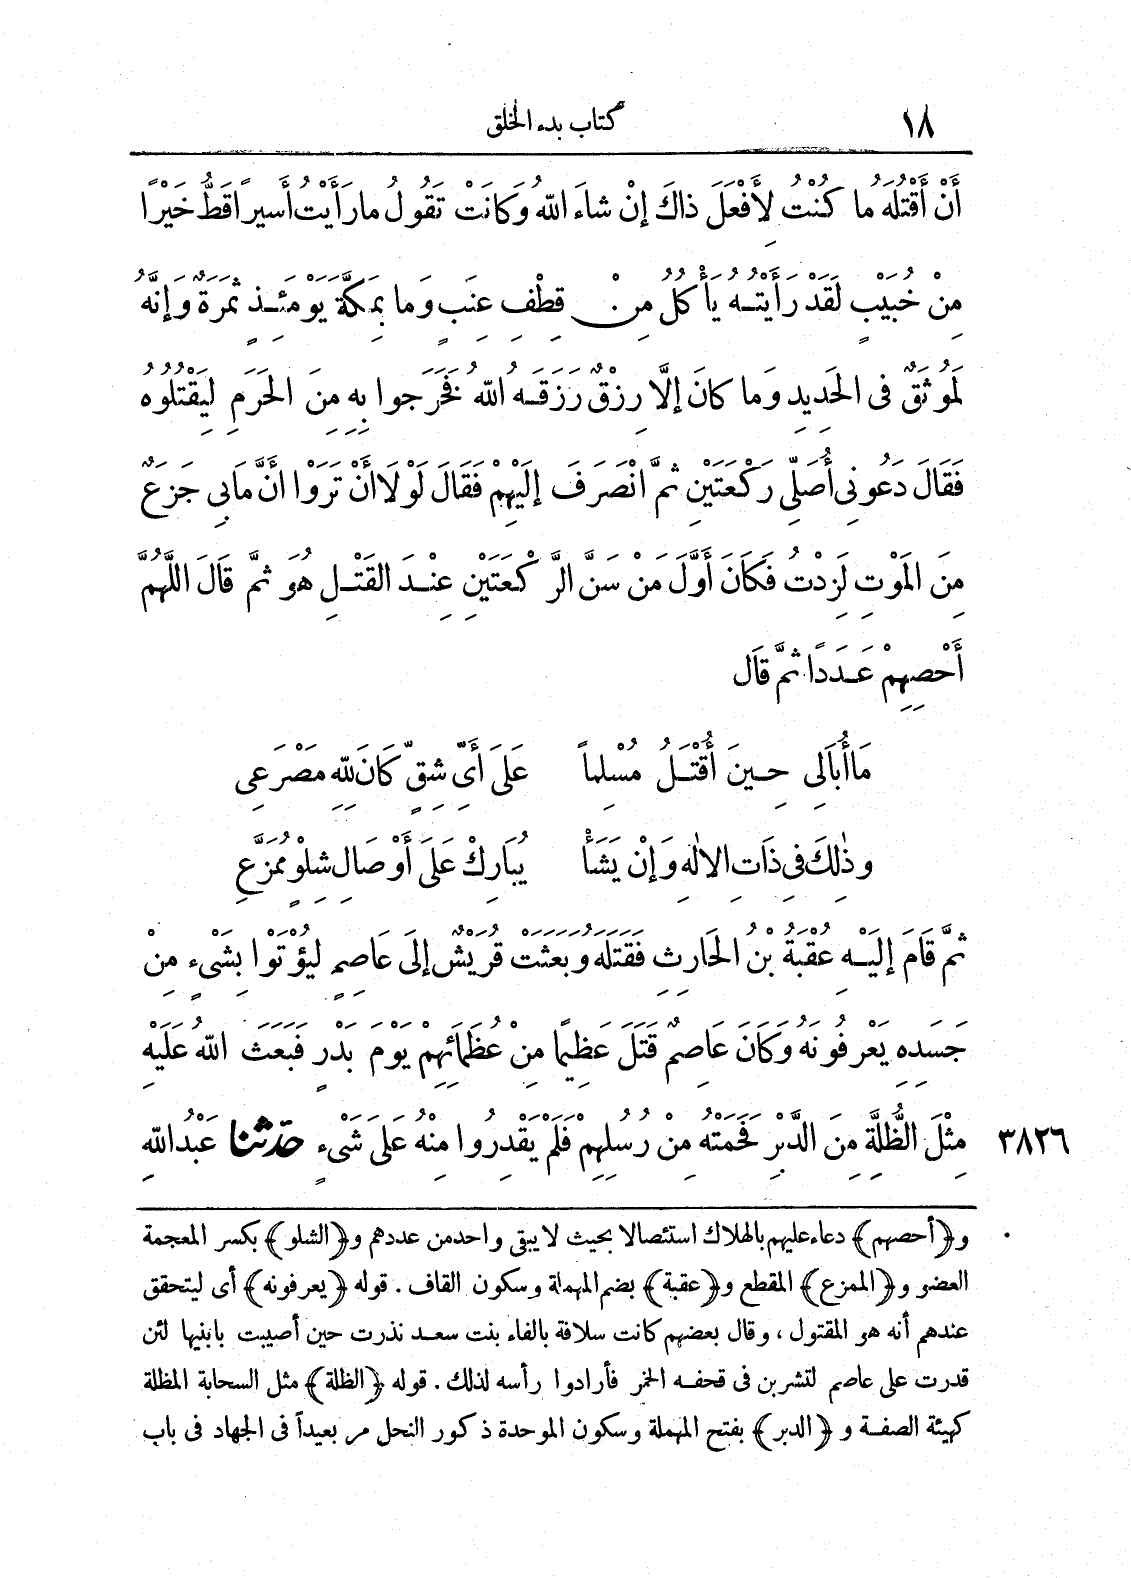 ١٨
كتاب بدء الخلق
أَنْ أَقْتُلَهُ مَا كُنْتُ لِأَفْعَلَ ذَاكَ إِنْ شَاءَ اللهُ وَكَانَتْ تَقُولُ مَا رَأَيْتُ أَسِيرًا قَطُّ خَيْرًا
مِنْ خُبَيْبٍ لَقَدْ رَأَيْتُهُ يَأْكُلُ مِنْ قِطْفِ عِنَبٍ وَمَا بِمَكَّةَ يَوْمَئِذٍ ثَمَرَةٌ وَإِنَّهُ
لَمُوثَقٌ فِى الْحَدِيدِ وَمَا كَانَ إِلَّا رِزْقٌ رَزَقَهُ اللهُ فَخَرَجُوا بِهِ مِنَ الْحَرَمِ لِيَقْتُلُوهُ
فَقَالَ دَعُونِى أُصَلِّى رَكْعَتَيْنِ ثُمَّ انْصَرَفَ إِلَيْهِمْ فَقَالَ لَوْلَا أَنْ تَرَوْا أَنَّ مَا بِى جَزَعٌ
مِنَ الْمَوْتِ لَزِدْتُ فَكَانَ أَوَّلَ مَنْ سَنَّ الرَّكْعَتَيْنِ عِنْدَ الْقَتْلِ هُوَ ثُمَّ قَالَ اللَّهُمَّ
أَحْصِهِمْ عَدَدًا ثُمَّ قَالَ
مَا أُبَالِى حِينَ أُقْتَلُ مُسْلِمًا عَلَى أَىِّ شِقٍّ كَانَ لِلّهِ مَصْرَعِى
وذٰلِكَ فِى ذَاتِ الالٰهِ وَإِنْ يَشَأْ يُبَارِكْ عَلَى أَوْصَالِ شِلْوٍ مُمَزَّعِ
ثُمَّ قَامَ إِلَيْهِ عُقْبَةُ بْنُ الْحَارِثِ فَقَتَلَهُ وَبَعَثَتْ قُرَيْشٌ إِلَى عَاصِمٍ لِيُؤْتَوْا بِشَىْءٍ مِنْ
جَسَدِهِ يَعْرِفُونَهُ وَكَانَ عَاصِمٌ قَتَلَ عَظِيمًا مِنْ عُظَمَائِهِمْ يَوْمَ بَدْرٍ فَبَعَثَ اللهُ عَلَيْهِ
مِثْلَ الظُّلَّةِ مِنَ الدَّبْرِ فَحَمَتْهُ مِنْ رُسُلِهِمْ فَلَمْ يَقْدِرُوا مِنْهُ عَلَى شَىْءٍ حدثنا عَبْدُ اللهِ
٣٨٢٦
و﴿أحصهم﴾ دعاء عليهم بالهلاك استئصالا بحيث لا يبقى واحد من عددهم و﴿الشلو﴾ بكسر المعجمة
العضو و﴿الممزع﴾ المقطع و﴿عقبة﴾ بضم المهملة وسكون القاف . قوله ﴿يعرفونه﴾ أى ليتحقق
عندهم أنه هو المقتول ، وقال بعضهم كانت سلافة بالفاء بنت سعد نذرت حين أصيبت بابنيها لئن
قدرت على عاصم لتشربن فى قحفه الخمر فأرادوا رأسه لذلك . قوله ﴿الظلة﴾ مثل السحابة المظلة
كهيئة الصفة و ﴿الدبر﴾ بفتح المهملة وسكون الموحدة ذكور النحل مر بعيداً فى الجهاد فى باب